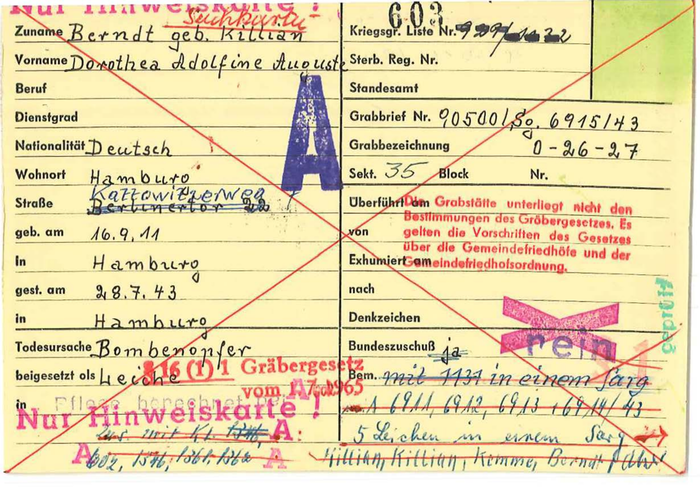 Nur Hinweiskarte !
Suchkarte
603
Zuname Berndt geb. Killian
Vorname Dorothea Adolfine Auguste
Beruf
Dienstgrad
Nationalität Deutsch
Wohnort Hamburg
Kattowitzerweg
Straße Berlinertor 22
geb. am 16.9.11
in Hamburg
gest. am 28.7.43
in Hamburg
Todesursache Bombenopfer
§ 16 (1) 1 Gräbergesetz
beigesetzt als Leiche
vom 1.7.1965
in
Nur Hinweiskarte !
A
A
A:
A
A
602, 1346, 1361, 1362
Kriegsgr. Liste Nr.
Sterb. Reg. Nr.
Standesamt
Grabbrief Nr. 90500/So. 6915/43
Grabbezeichnung O-26-27
Sekt. 35 Block Nr.
Überführt am
Die Grabstätte unterliegt nicht den
Bestimmungen des Gräbergesetzes. Es
von gelten die Vorschriften des Gesetzes
über die Gemeindefriedhöfe und der
Exhumiert am Gemeindefriedhofsordnung.
nach
Denkzeichen
geprüft
nein
Bundeszuschuß ja
Bem. mit 1131 in einem Sarg
6911, 6912, 6913 + 6914/43
5 Leichen in einem Sarg
Killian, Killian, Kemme, Berndt